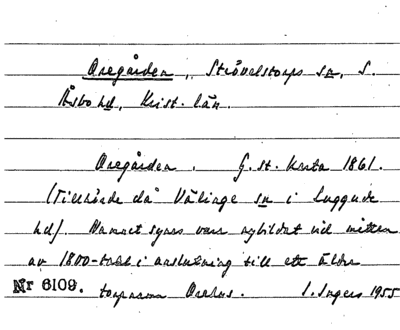 Oregården, Strövelstorps sn, S.
Åsbo hd, Krist. län.
Oregården. G. st. karta 1861.
(Tillhörde då Välinge sn i Luggude
hd). Namnet synes vara nybildat vid mitten
av 1800-talet i anslutning till ett äldre
Nr 6109. torpnamn Orehus. I. Ingers 1955